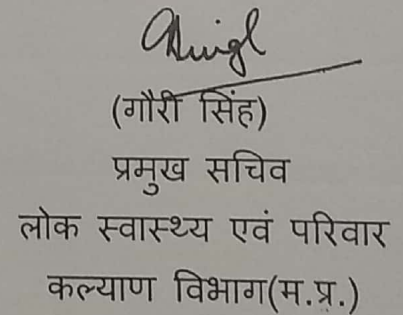 (गौरी सिंह)
प्रमुख सचिव
लोक स्वास्थ्य एवं परिवार
कल्याण विभाग(म.प्र.)